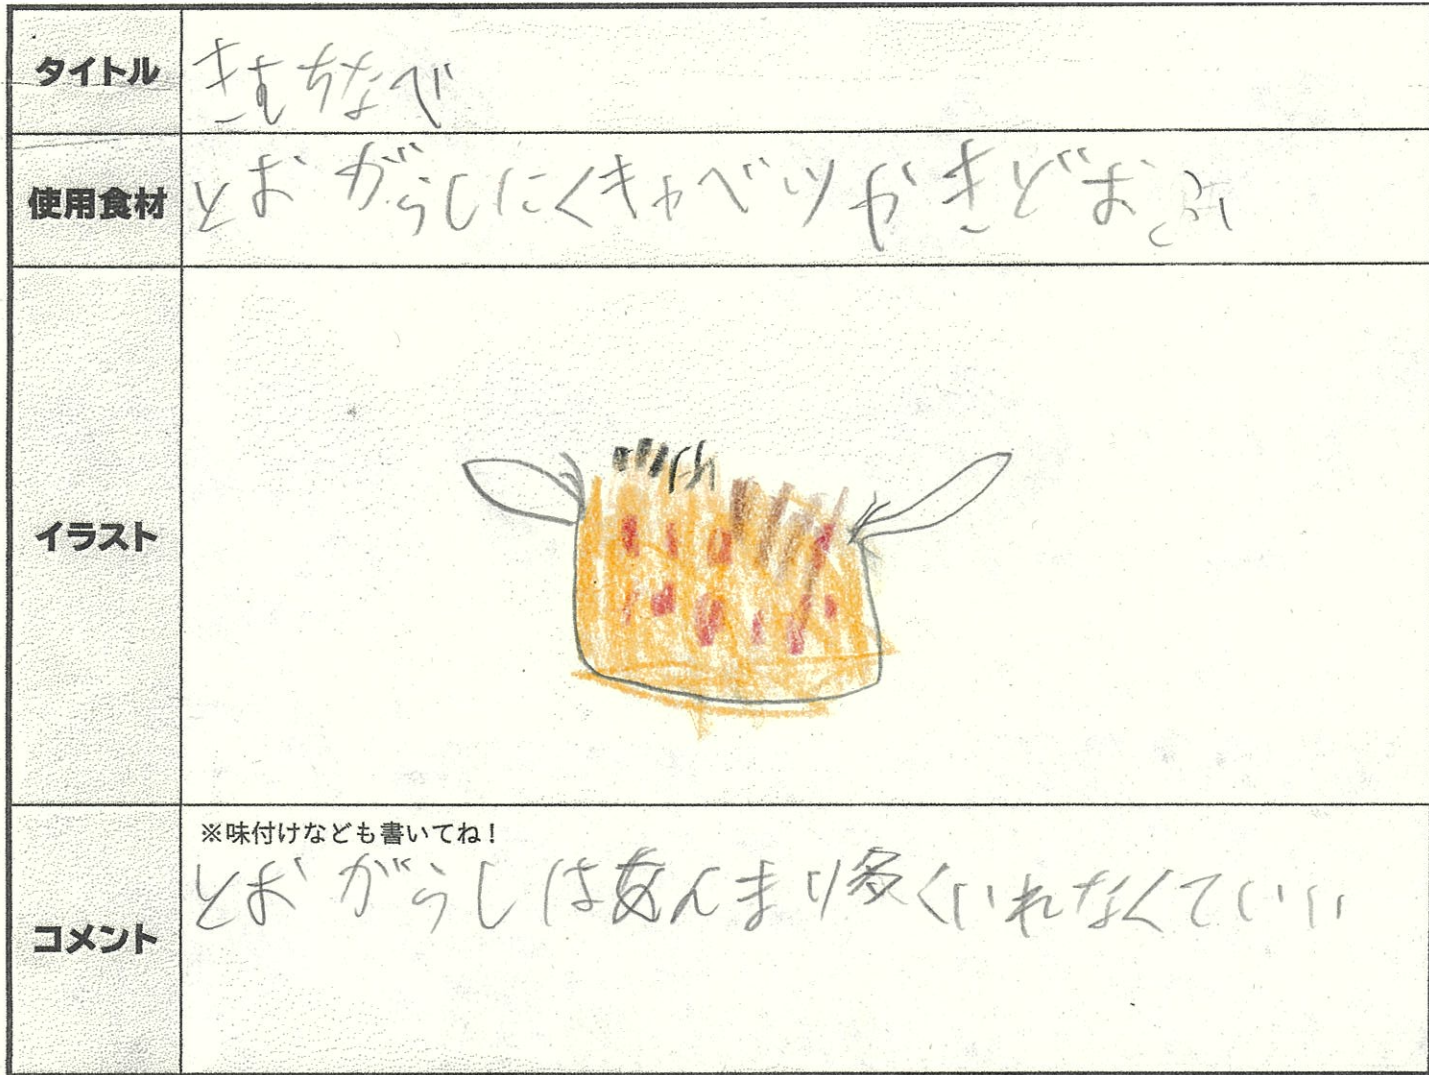 タイトル
きむちなべ
使用食材
とおがらしにくキャベツやきどおふ
イラスト
コメント
※味付けなども書いてね!
とおがらしはあんまり多くいれなくていい